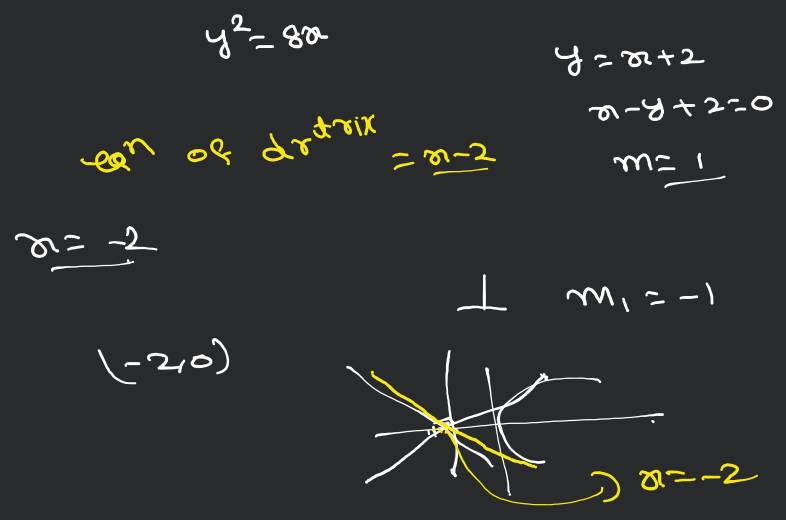 y² = 8x
y = x+2
x-y+2=0
m = 1
eqⁿ of drctrix = x-2
x = -2
⊥ m₁ = -1
(-2,0)
x = -2